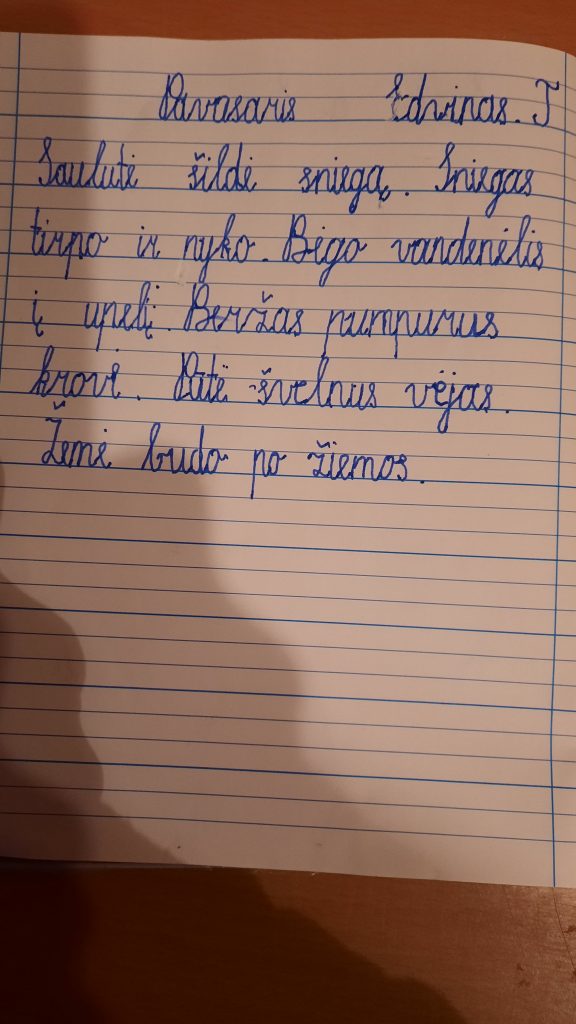 Pavasaris Edvinas. T
Saulutė šildė sniegą. Sniegas
tirpo ir nyko. Bėgo vandenėlis
į upelį. Beržas pumpurus
krovė. Pūtė švelnus vėjas.
Žemė budo po žiemos.